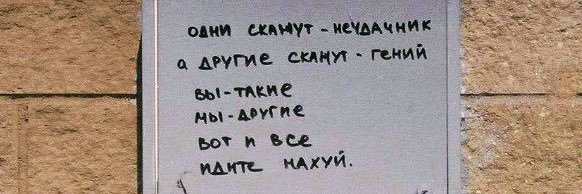 одни скажут - неудачник
а другие скажут - гений
вы - такие
мы - другие
вот и все
идите нахуй.